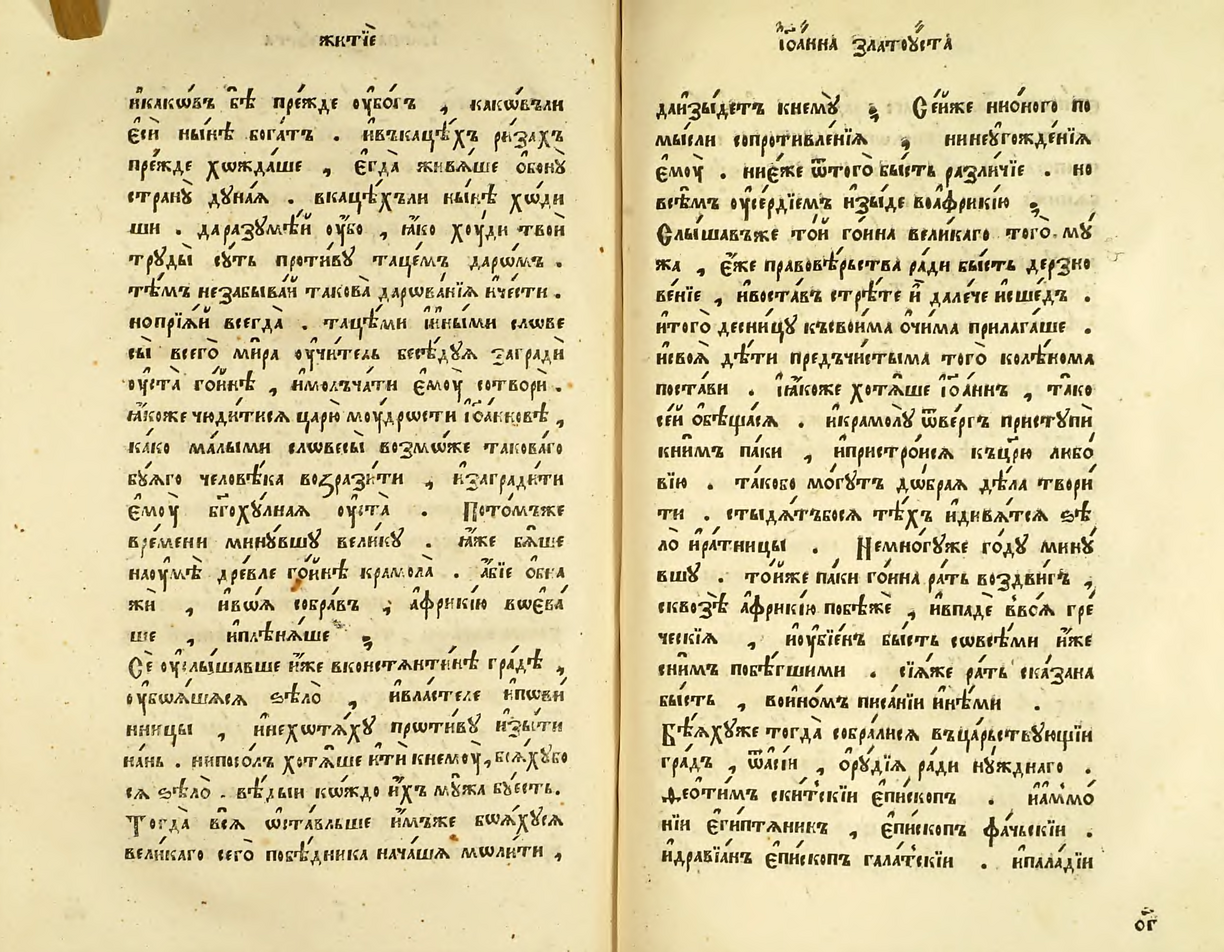 житїе
ѝкакѡвъ бѣ̀ пре́жде ᲂу҆бо́гъ , какѡ́въли
є҆сѝ ны́нѣ бога́тъ . ѝвъкацѣ́хъ ри́захъ
пре́жде хѡжда́ше , є҆гда̀ живѧ́ше ѻ҆бонꙋ̀
странꙋ̀ дꙋ́наѧ . вкацѣ́хъли ны́нѣ хѡ́ди
ши . даразꙋмѣ́й ᲂу҆̀бо , ꙗ҆́ко хꙋ́ди твоѝ
трꙋды̀ сꙋ́ть проти́вꙋ таце́мъ дарѡ́мъ .
тѣ́мъ незабыва́й такова̀ дарѡва́нїѧ ѝче́сти .
нопрїѧ́й всегда̀ . таце́ми и҆ны́ми слѡве
сы̀ всего̀ ми́ра ᲂу҆чи́тель бесѣ́дꙋѧ заградѝ
ᲂу҆ста̀ го́инѣ , ѝмолъча́ти є҆мꙋ̀ сотворѝ .
ꙗ҆́коже чюди́тисѧ царю̀ мꙋ́дрѡсти і҆ѻа́нновѣ ,
ка́ко ма́лыми слѡвесы̀ возмѡ́же такова́го
бꙋ́ѧго человѣ́ка возрази́ти , ѝзагради́ти
є҆мꙋ̀ бг҃охꙋ́лнаѧ ᲂу҆ста̀ . Пото́мъже
вре́мени минꙋ́вшꙋ вели́кꙋ . ꙗ҆́же бѧ́ше
наꙋмѣ̀ дре́вле го́инѣ крамола̀ . а҆́бїе ѻ҆бна
жѝ , ѝвѡ́ѧ собра́въ , а҆фрикі́ю вѡева́
ше , ѝплѣнѧ́ше
Сѐ ᲂу҆слы́шавше и҆̀же вконстѧнти́нѣ гра́дѣ ,
ᲂу҆боѧ́шасѧ ѕѣлѡ̀ , ѝвла́стеле ѝпѡви
нницы , ѝнехотѧ́хꙋ прѡти́вꙋ и҆зы́ти
на́нь . нипосо́лъ хотѧ́ше и҆тѝ кнемꙋ̀ , боѧ́хꙋбо
сѧ ѕѣло̀ . вѣ́дыи кѡ́ждо и҆́хъ мꙋ́жа бꙋ́есть .
Тогда̀ всѧ̀ ѡ҆ста́вльше и҆́мъже боѧ́хꙋсѧ
вели́каго сего̀ побѣ́дника нача́шѧ мѡли́ти ,
і҆ѻа́нна златоꙋ́ста
даи҆зы́детъ кнемꙋ̀ Се́йже ниѻ҆но́го по
мы́сли сопротивле́нїѧ , нинеꙋгожде́нїѧ
є҆мꙋ̀ . ние҆́же ѿтого̀ бы́сть разли́чїе . но
всѣ́мъ ᲂу҆се́рдїемъ и҆зы́де воа҆фрикі́ю
Слы́шавъже то́й гоина вели́каго того̀ мꙋ́
жа , є҆́же правовѣ́рьства ра́ди бы́сть дерзно
ве́нїе , ѝвоста́въ стрѣ́те и҆̀ дале́че и҆ше́дъ .
ѝтого̀ десни́цꙋ къ свои́ма ѻ҆чи́ма прилага́ше .
ѝсвоѧ̀ дѣ́ти предъчи́стыма того̀ колѣ́нома
поста́ви . і҆ꙗ́коже хотѧ́ше і҆ѻа́ннъ , та́ко
се́й ѻ҆бѣща́сѧ . ѝкрамолꙋ̀ ѿве́ргъ пристꙋпѝ
кни́мъ па́ки , ѝпристро́исѧ къцр҃ю либо́
вїю . та́кобо мо́гꙋтъ дѡ́браѧ дѣ́ла твори́
ти . стыдѧ́тъбосѧ тѣ́хъ ѝдивѧ́тсѧ ѕѣ
ло̀ ѝра́тницы . Немно́гꙋже го́дꙋ минꙋ́
вшꙋ . то́йже па́ки го́ина ра́ть воздви́гъ ,
сквозѣ̀ а҆фрикі́ю побѣ́же , ѝвпадѐ ввсѧ̀ гре́
ческїѧ , ѝꙋбїе́нъ бы́сть сѡвсѣ́ми и҆́же
сни́мъ побѣ́гшими . сїѧ́же ра́ть ска́зана
бы́сть , вои́номъ писа́нїи и҆нѣ́ми .
Бѣѧ́хꙋже тогда̀ собрали́сѧ въца́рьствꙋющїи
гра́дъ , ѿа҆сі́и , ѻ҆рꙋ́дїѧ ра́ди нꙋ́жднаго .
Деоти́мъ ски́тскїи є҆пи́скопъ . ѝа҆ммо́
нїи є҆ги́птѧникъ , є҆пи́скопъ фа́чьскїи .
ѝдравїа́нъ є҆пи́скопъ гала́тскїи . ѝпала́дїи
ѻ҃г